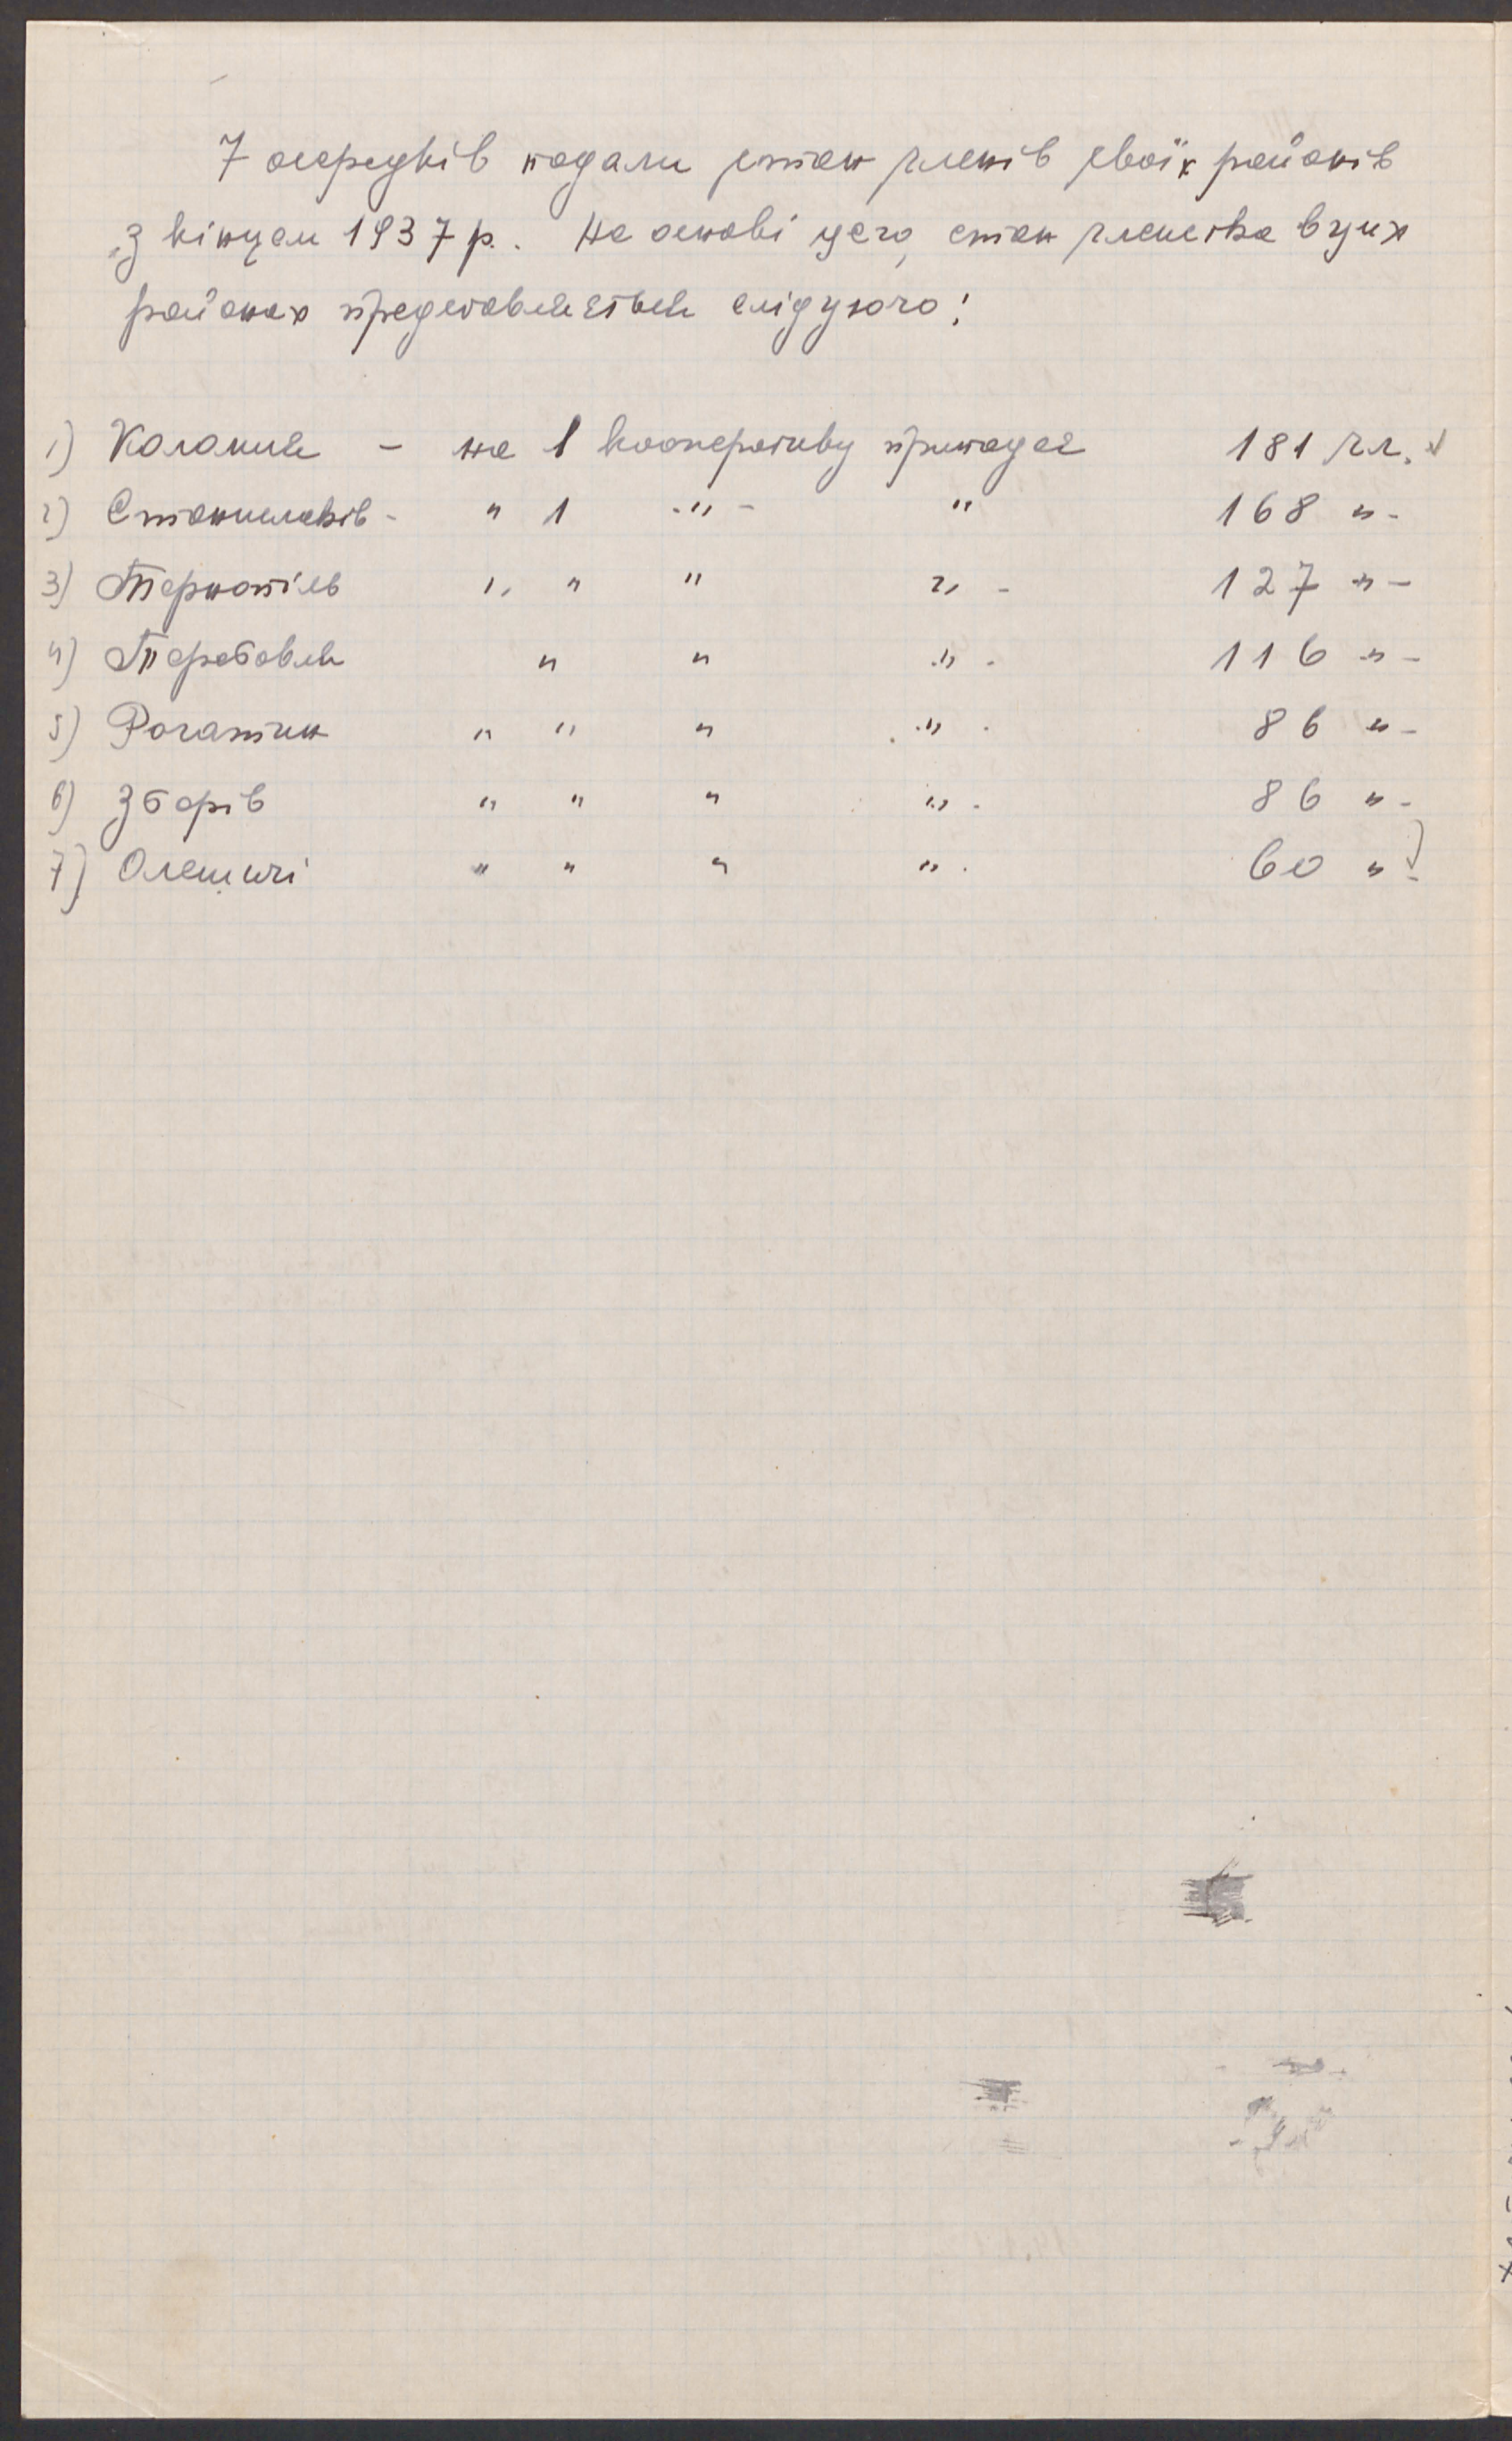 7 осередків подали стан членів своїх районів
з кінцем 1937 р. На основі цего, стан членства в цих
районах представляється слідуючо:
1) Коломия – на 1 кооперативу припадає 181 чл.
2) Станиславів - " 1 -"- " 168 "-
3) Тернопіль " " " " - 127 "-
4) Теребовля " " " - 116 "-
5) Рогатин " " " " - 86 "-
6) Зборів " " " " - 86 "-
7) Олешичі " " " " - 60 "-